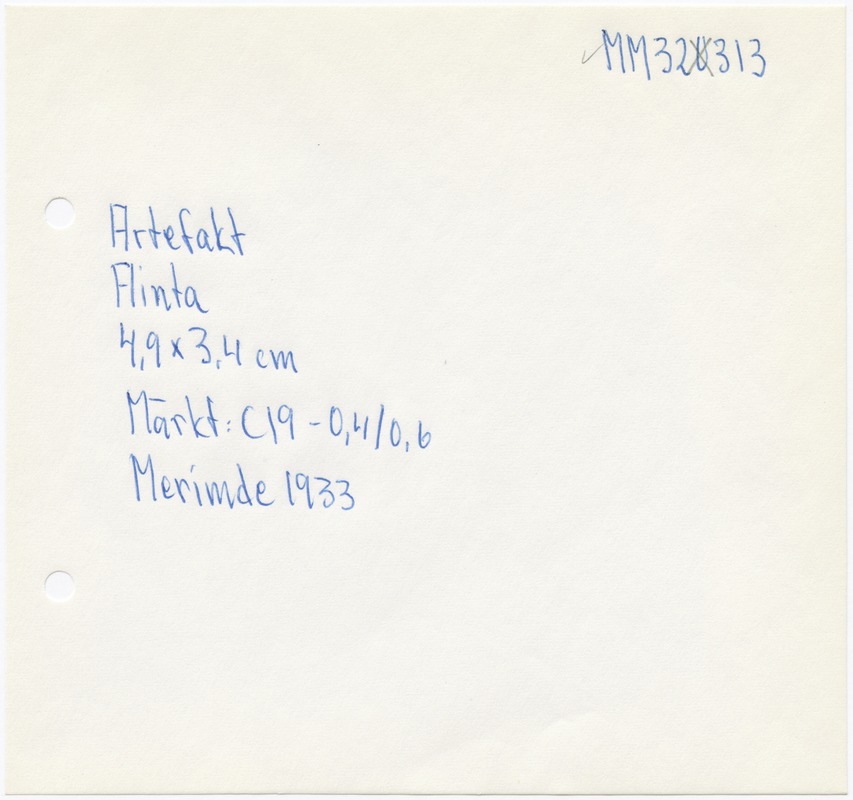 MM32313
Artefakt
Flinta
4,9 x 3,4 cm
Märkt: C19 - 0,4/0,6
Merimde 1933